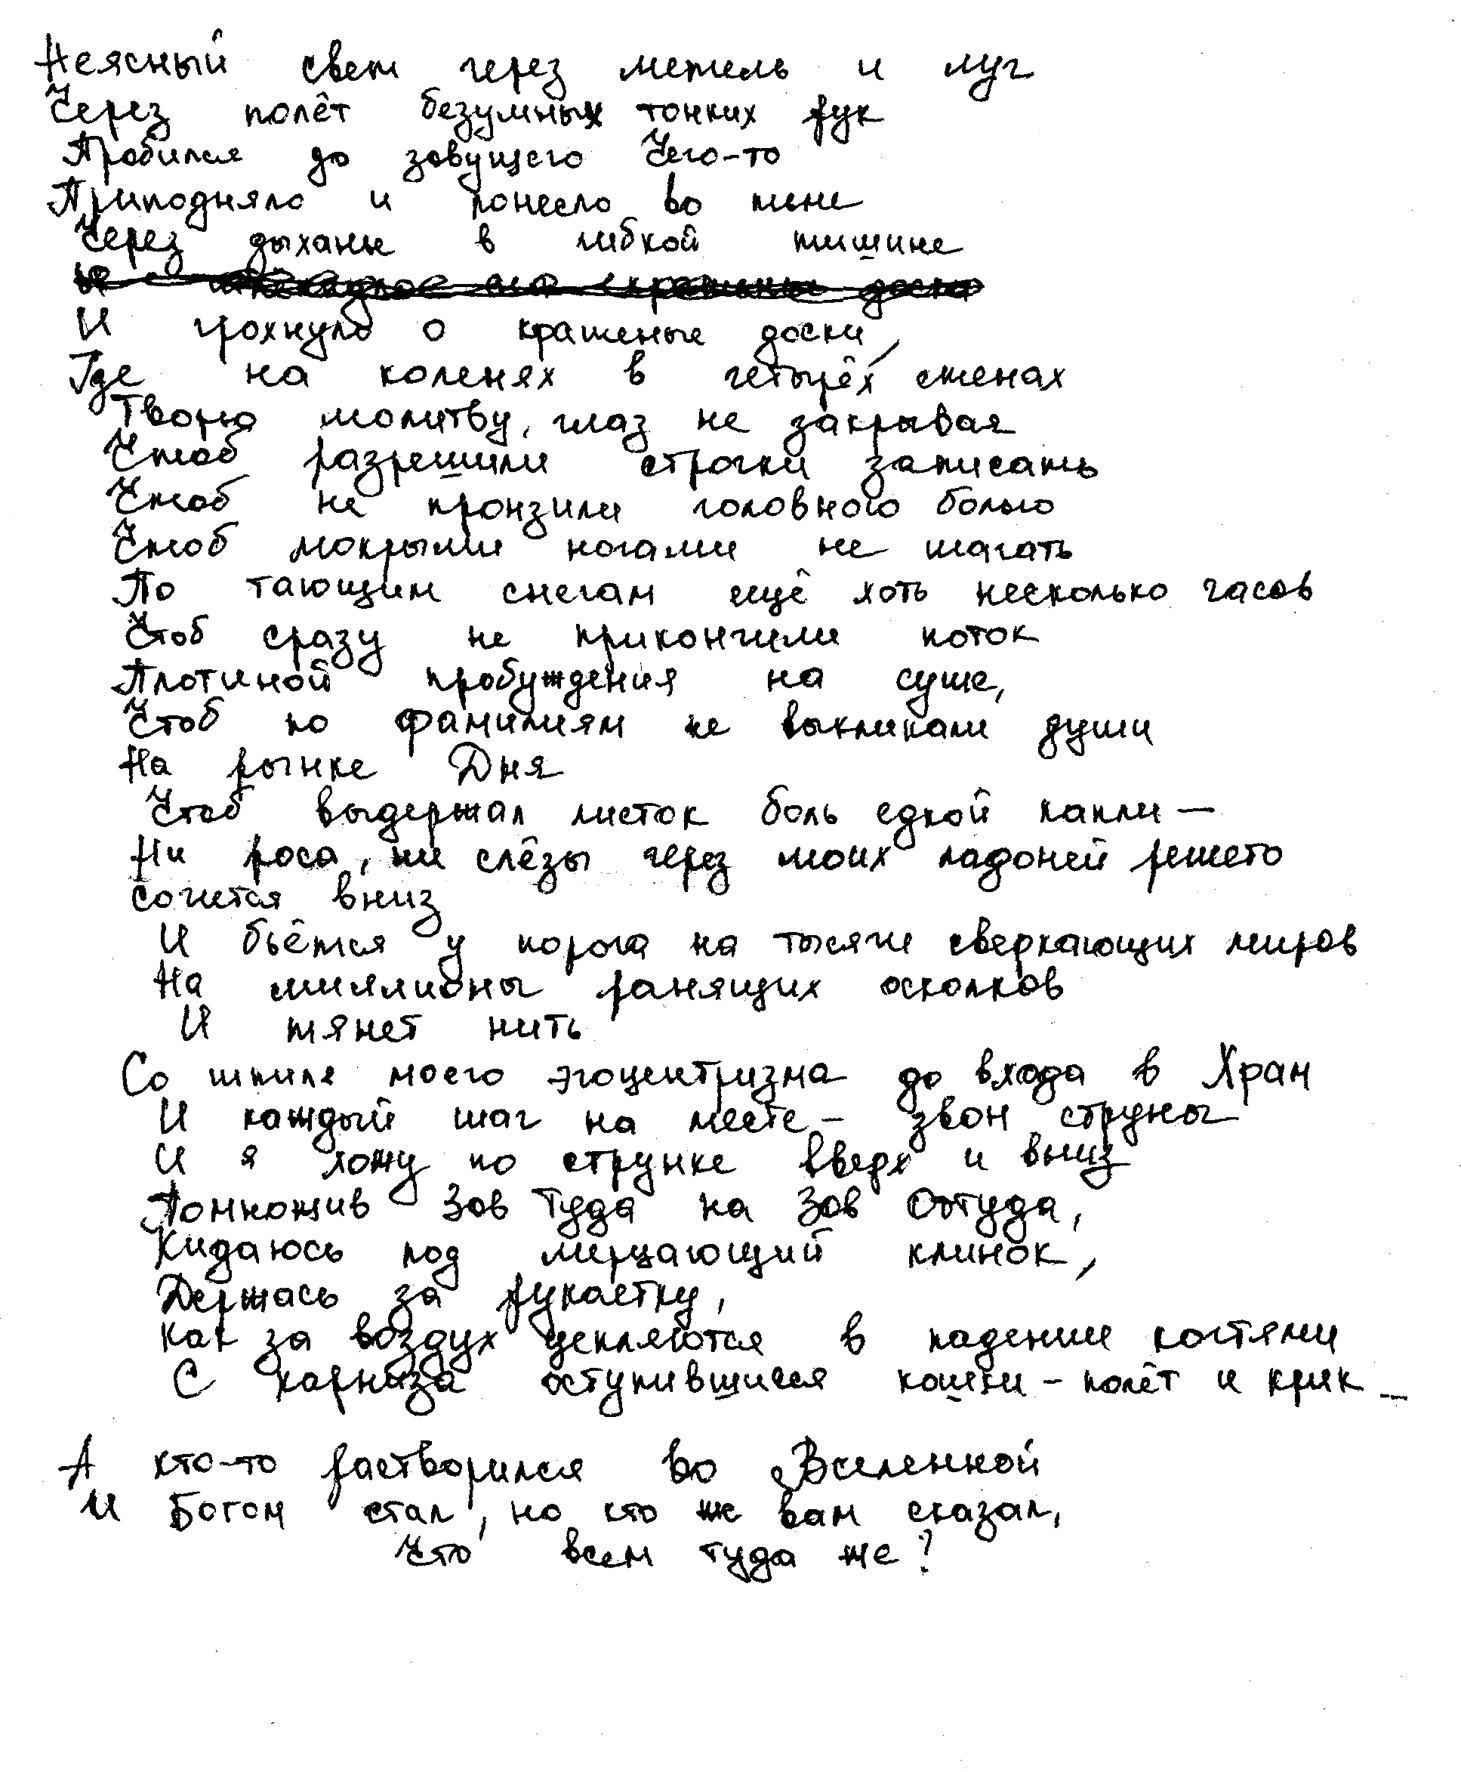 Неясный свет через метель и луг
Через полёт безумных тонких рук
Пробился до зовущего Чего-то
Приподняло и понесло во мне
Через дыханье в липкой тишине
И грохнуло о крашеные доски,
Где на коленях в четырёх стенах
Творю молитву, глаз не закрывая
Чтоб разрешили строчки записать
Чтоб не пронзили головною болью
Чтоб мокрыми ногами не шагать
По тающим снегам ещё хоть несколько часов
Чтоб сразу не прикончили поток
Плотиной пробуждения на суше,
Чтоб по фамилиям не выкликали души
На рынке Дня
Чтоб выдержал листок боль едкой капли —
Ни роса, ни слёзы через моих ладоней решето
сочится вниз
И бьётся у порога на тысячи сверкающих миров
На миллионы ранящих осколков
И тянет нить
Со шпиля моего эгоцентризма до входа в Храм
И каждый шаг на месте – звон струны
И я хожу по струнке вверх и вниз
Помножив Зов Туда на Зов Оттуда,
Кидаюсь под мерцающий клинок,
Держась за рукоятку,
Как за воздух цепляются в падении когтями
С карниза оступившиеся кошки – полёт и крик –
А кто-то растворился во Вселенной
И Богом стал, но кто же вам сказал,
Что всем туда же?